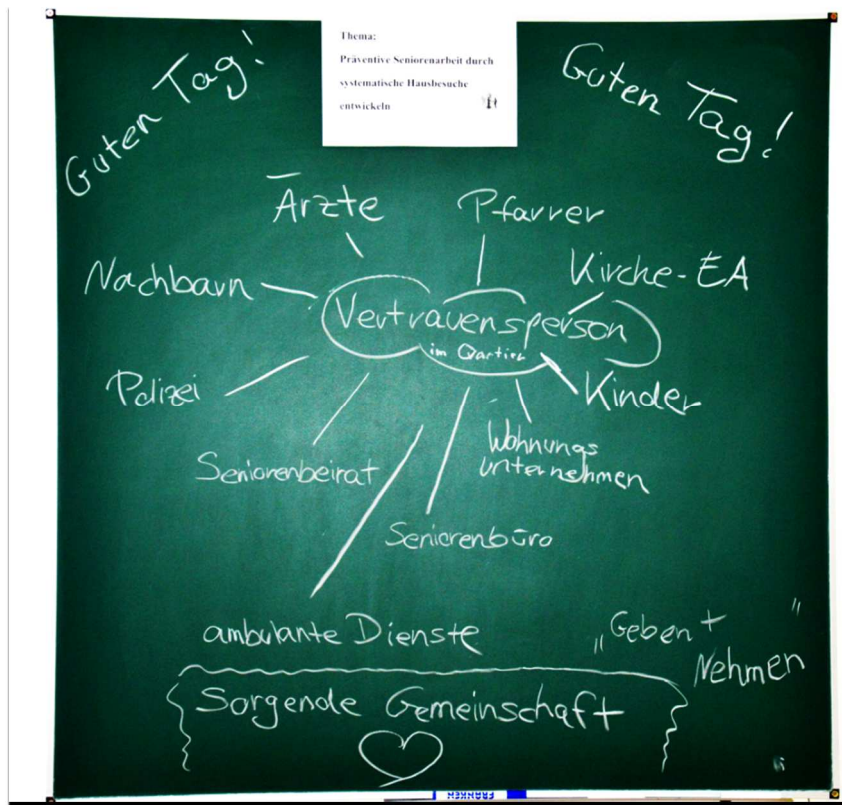 Thema:
Präventive Seniorenarbeit durch
systematische Hausbesuche
entwickeln
Guten Tag!
Guten Tag!
Ärzte
Pfarrer
Nachbarn
Kirche-EA
Vertrauensperson
im Quartier
Polizei
Kinder
Seniorenbeirat
Wohnungs
unternehmen
Seniorenbüro
ambulante Dienste
„Geben +
Nehmen"
Sorgende Gemeinschaft
FRANKEN